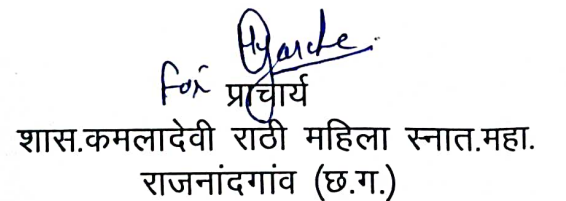 For प्राचार्य
शास.कमलादेवी राठी महिला स्नात.महा.
राजनांदगांव (छ.ग.)